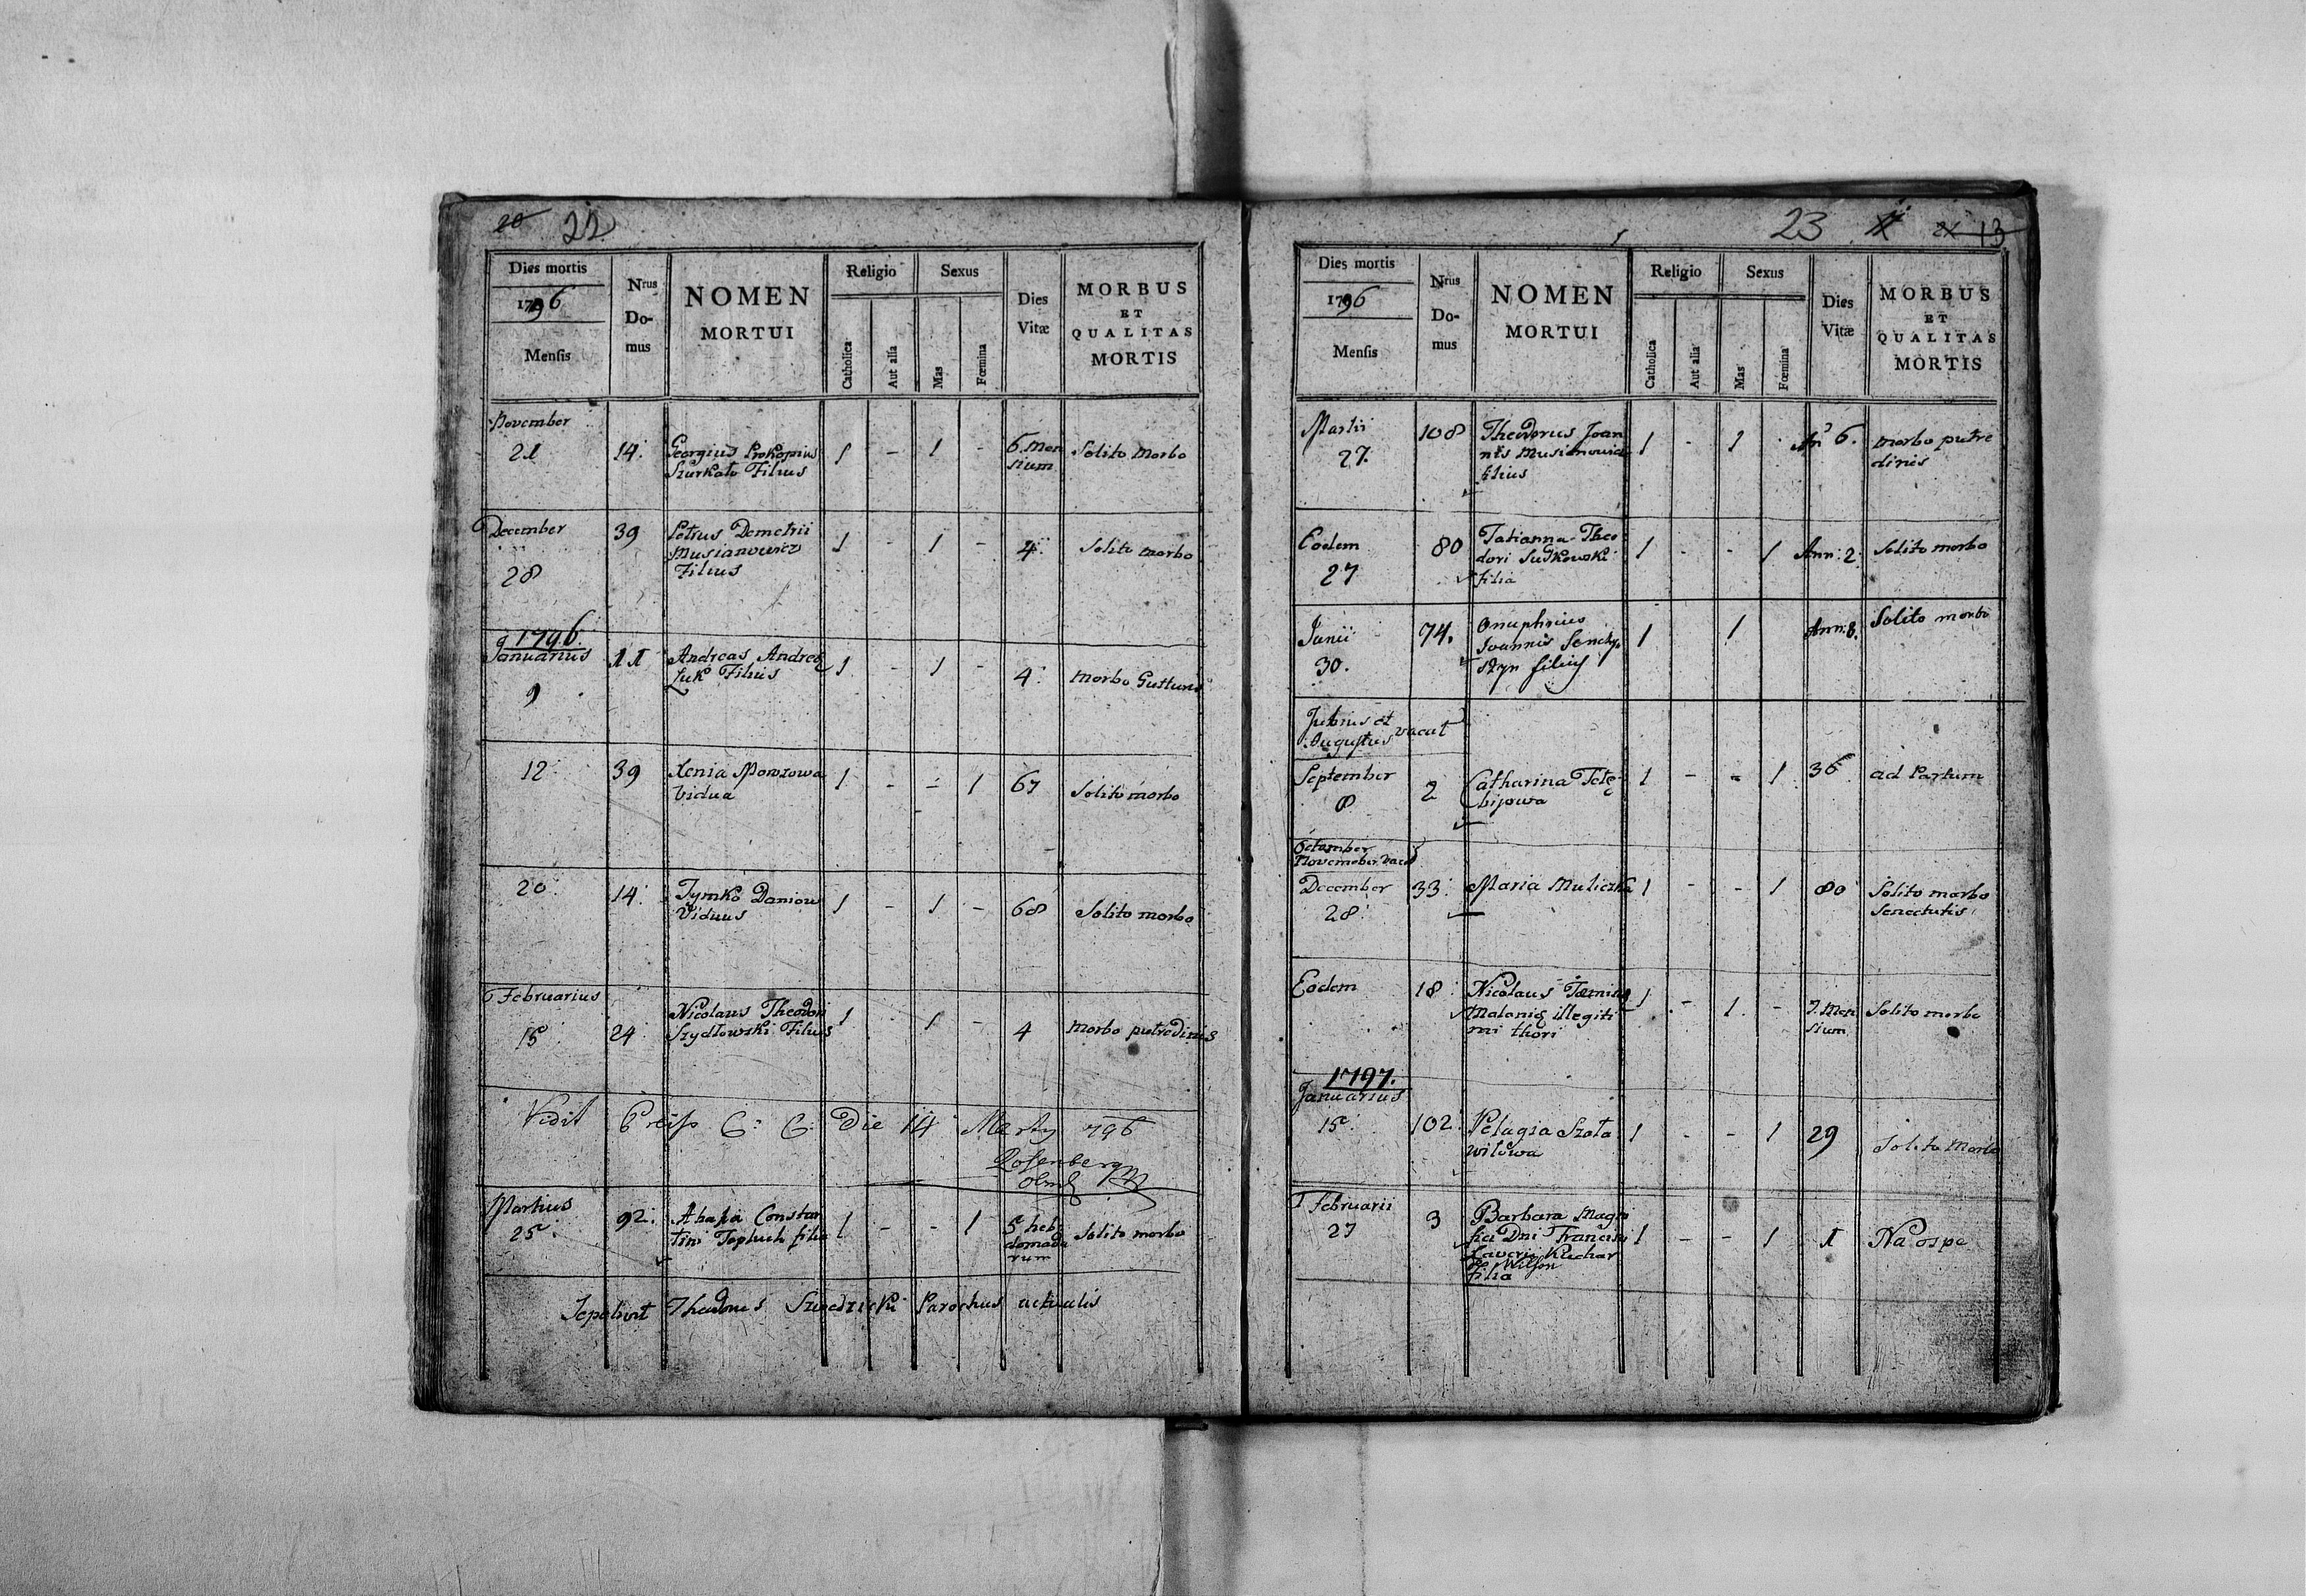 20 22
Dies mortis
1796
Mensis
Nrus Do-mus
NOMEN MORTUI
Religio
Catholica
Aut alia
Sexus
Mas
Fœmina
Dies Vitæ
MORBUS ET QUALITAS MORTIS
November
21 14. Georgius Prokopius 1 - 1 - 6. Men Solito Morbo
Szurkalo Filius sium
December 39 Petrus Demetrii 1 - 1 - 4. Solito morbo
28 Musianowicz
Filius
1796.
Januarius 11 Andreas Andreæ 1 - 1 - 4. Morbo Gutturis
9 Luk Filius
12 39 Xenia Mowzowa 1 - - 1 67 Solito morbo
Vidua
20. 14. Tymko Daniow 1 - 1 - 68 Solito morbo
Viduus
Februarius
15 24 Nicolaus Theodori 1 - 1 - 4 Morbo putredinis
Szydłowski Filius
Vidit C: C: Die 14 Marty 796
Rosenberg
Martius 92. Ahafia Constan 1 - - 1 5 heb Solito morbo
25. tini Topluch filia domada
rum
Sepelivit Theodorus Szwedzicki Parochus actualis
23 21 13
Dies mortis
1796
Mensis
Nrus Do-mus
NOMEN MORTUI
Religio
Catholica
Aut alia
Sexus
Mas
Fœmina
Dies Vitæ
MORBUS ET QUALITAS MORTIS
Martii 108 Theodorus Joan 1 - 1 - An 6. morbo putre
27. nis Musianowicz dinis
filius
Eodem 80 Tatianna Theo 1 - - 1 Ann: 2. Solito morbo
27 dori Sudkowski
filia
Junii 74. Onuphrius 1 1 Ann: 8. Solito morbo
30. Joannis Senchy
szyn filius
Julius et vacat
Augustus
September 2 Catharina Tete 1 - - 1 36 ad Partum
8 bijowa
October
November vacat
December 33. Maria Muliczka 1 - - 1 80 Solito morbo
28. Senectutis
Eodem 18. Nicolaus 1 - 1. - 7. Men Solito morbo
Malaniæ illegiti sium
mi thori
1797.
Januarius
15. 102. Pelagia Szata 1 - - 1 29 Solito Morbo
wilowa
Februarii 3 Barbara Magni 1 - - 1 1 Na ospe
27 fici Dni Francisci
Xaverii Kuchar
de Wilson
Filia